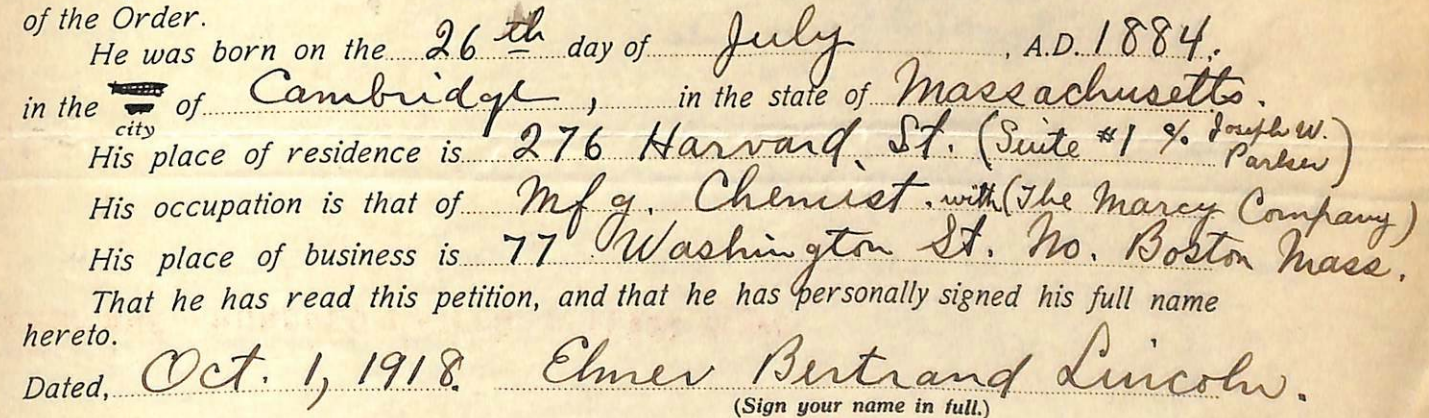 of the Order.
He was born on the 26th day of July, A.D. 1884.
in the city of Cambridge, in the state of Massachusetts.
His place of residence is 276 Harvard St. (Suite #1 % Joseph W. Parker)
His occupation is that of Mfg. Chemist. with (The Marcy Company)
His place of business is 77 Washington St. No. Boston Mass.
That he has read this petition, and that he has personally signed his full name
hereto.
Dated, Oct. 1, 1918. Elmer Bertrand Lincoln.
(Sign your name in full.)